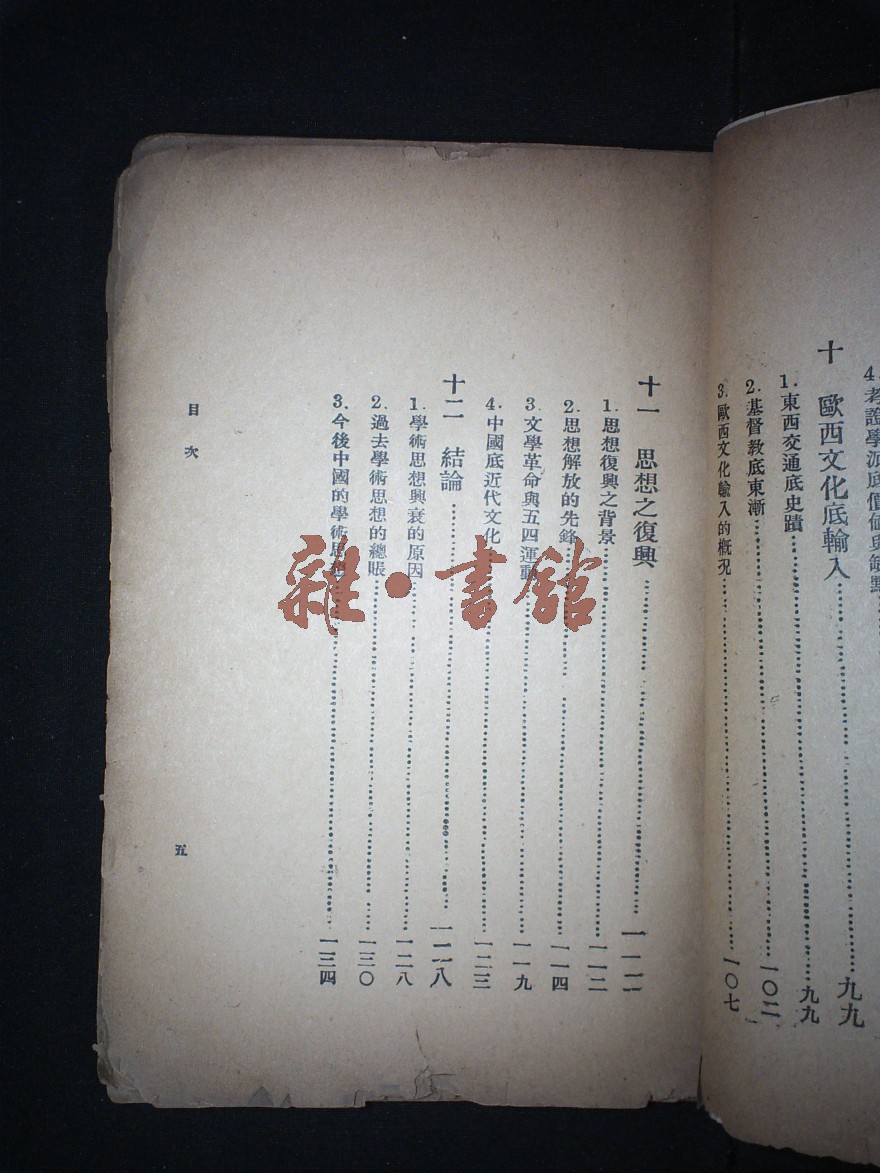 4.考證學派底價値與缺點
十 歐西文化底輸入……九九
1.東西交通底史蹟……九九
2.基督教底東漸……一〇二
3.歐西文化輸入的概況……一〇七
十一 思想之復興……一一二
1.思想復興之背景……一一二
2.思想解放的先鋒……一一四
3.文學革命與五四運動……一一九
4.中國底近代文化……一二三
十二 結論……一二八
1.學術思想興衰的原因……一二八
2.過去學術思想的總賬……一三〇
3.今後中國的學術思想……一三四
目次
五
雜·書館